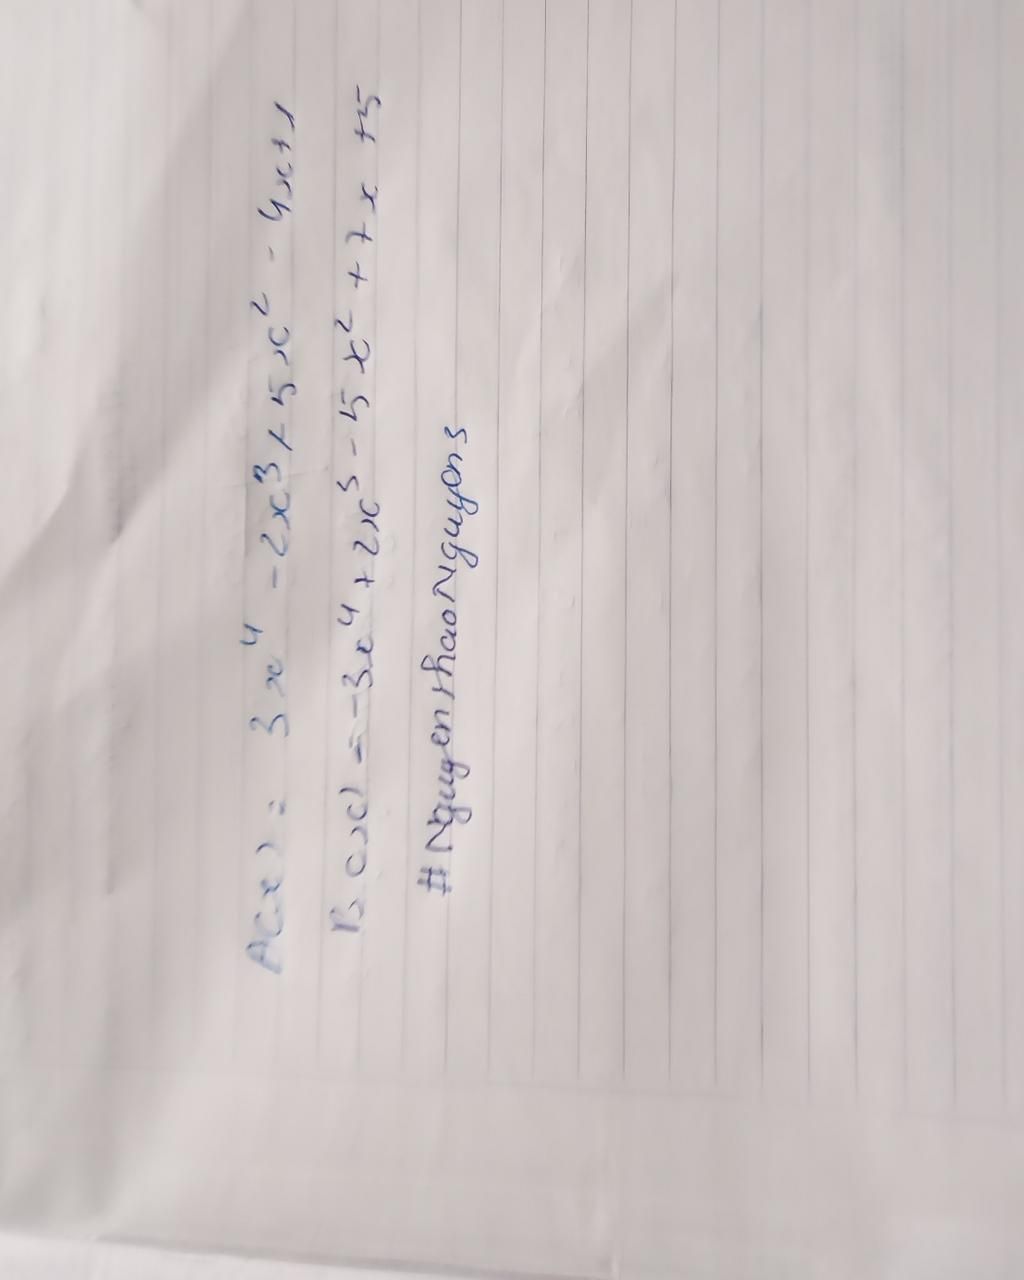 A(x) = 3x⁴ - 2x³ + 5x² - 4x + 1
B(x) = -3x⁴ + 2x³ - 5x² + 7x + 5
#NguyenthaoNguyen3